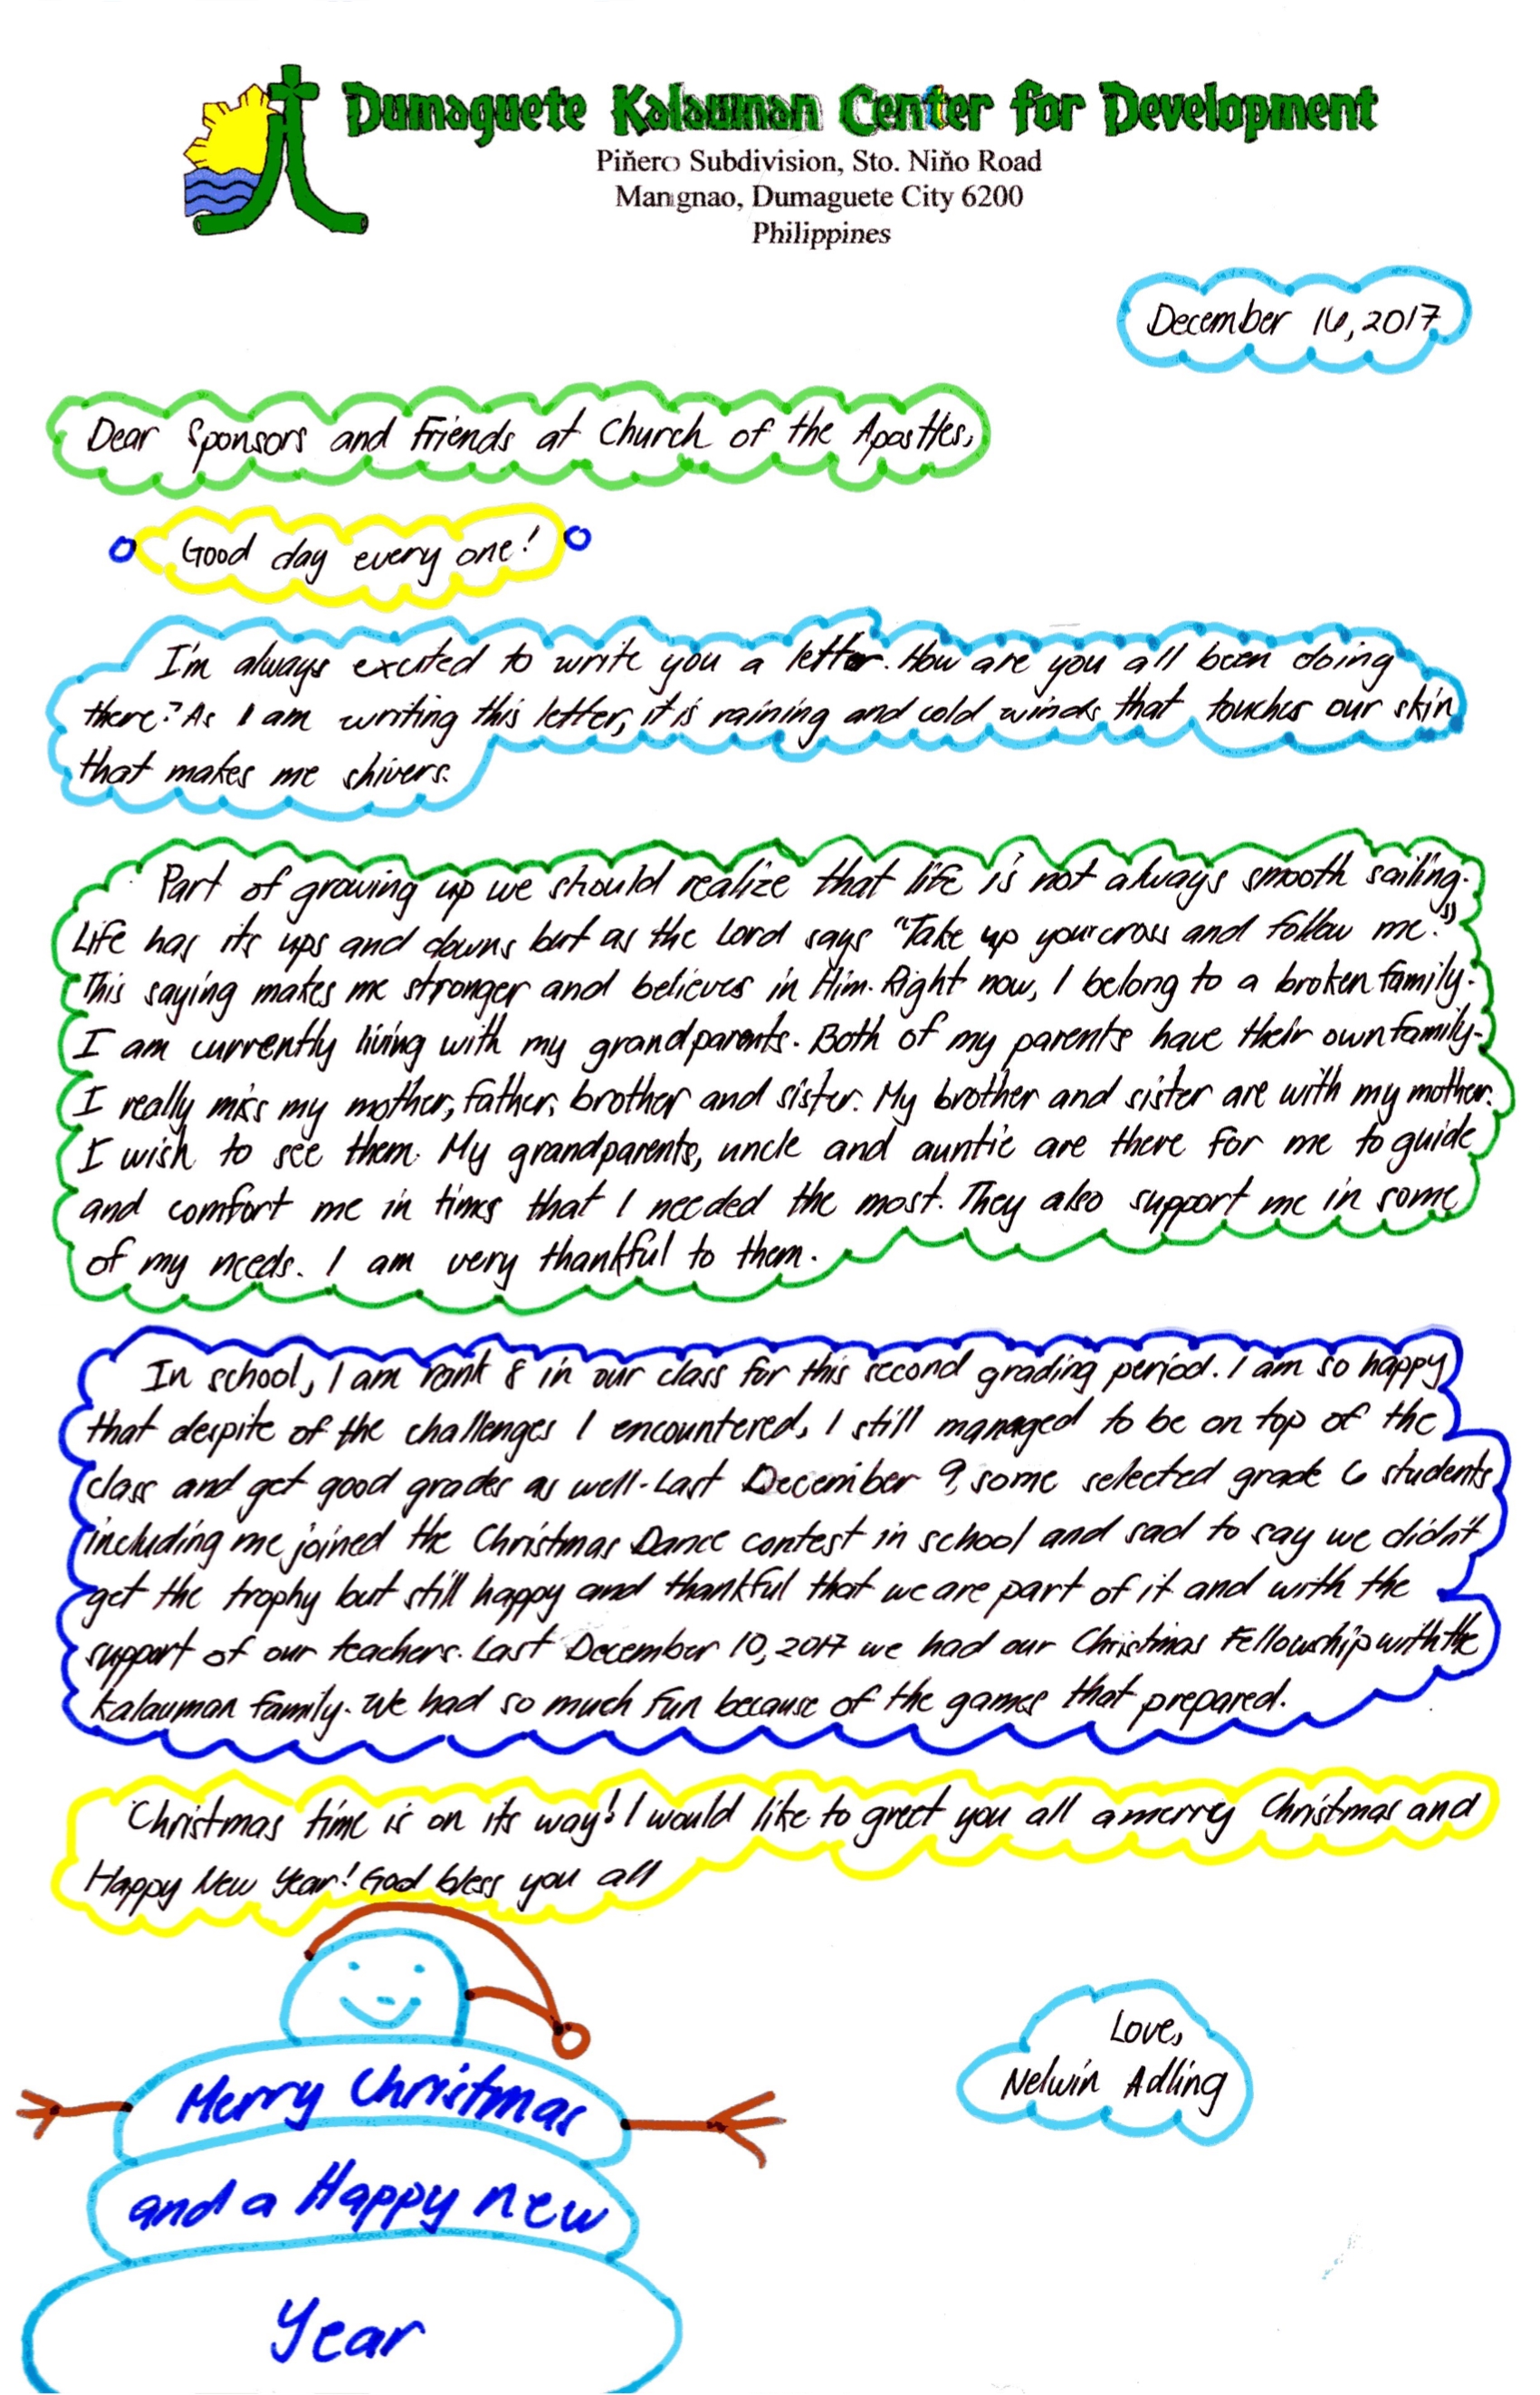 Dumaguete Kalauman Center for Development
Piñero Subdivision, Sto. Niño Road
Mangnao, Dumaguete City 6200
Philippines
December 16, 2017
Dear Sponsors and Friends at Church of the Apostles,
Good day every one!
I'm always excited to write you a letter. How are you all been doing
there? As I am writing this letter, it is raining and cold winds that touches our skin
that makes me shivers.
Part of growing up we should realize that life is not always smooth sailing.
Life has its ups and downs but as the Lord says "Take up your cross and follow me."
This saying makes me stronger and believes in Him. Right now, I belong to a broken family.
I am currently living with my grandparents. Both of my parents have their own family.
I really miss my mother, father, brother and sister. My brother and sister are with my mother.
I wish to see them. My grandparents, uncle and auntie are there for me to guide
and comfort me in times that I needed the most. They also support me in some
of my needs. I am very thankful to them.
In school, I am rank 8 in our class for this second grading period. I am so happy
that despite of the challenges I encountered, I still managed to be on top of the
class and get good grades as well. Last December 9, some selected grade 6 students
including me joined the Christmas Dance contest in school and sad to say we didn't
get the trophy but still happy and thankful that we are part of it and with the
support of our teachers. Last December 10, 2017 we had our Christmas Fellowship with the
Kalauman family. We had so much fun because of the games that prepared.
Christmas time is on its way! I would like to greet you all a merry Christmas and
Happy New Year! God bless you all
Love,
Nelwin Adling
Merry Christmas
and a Happy new
Year